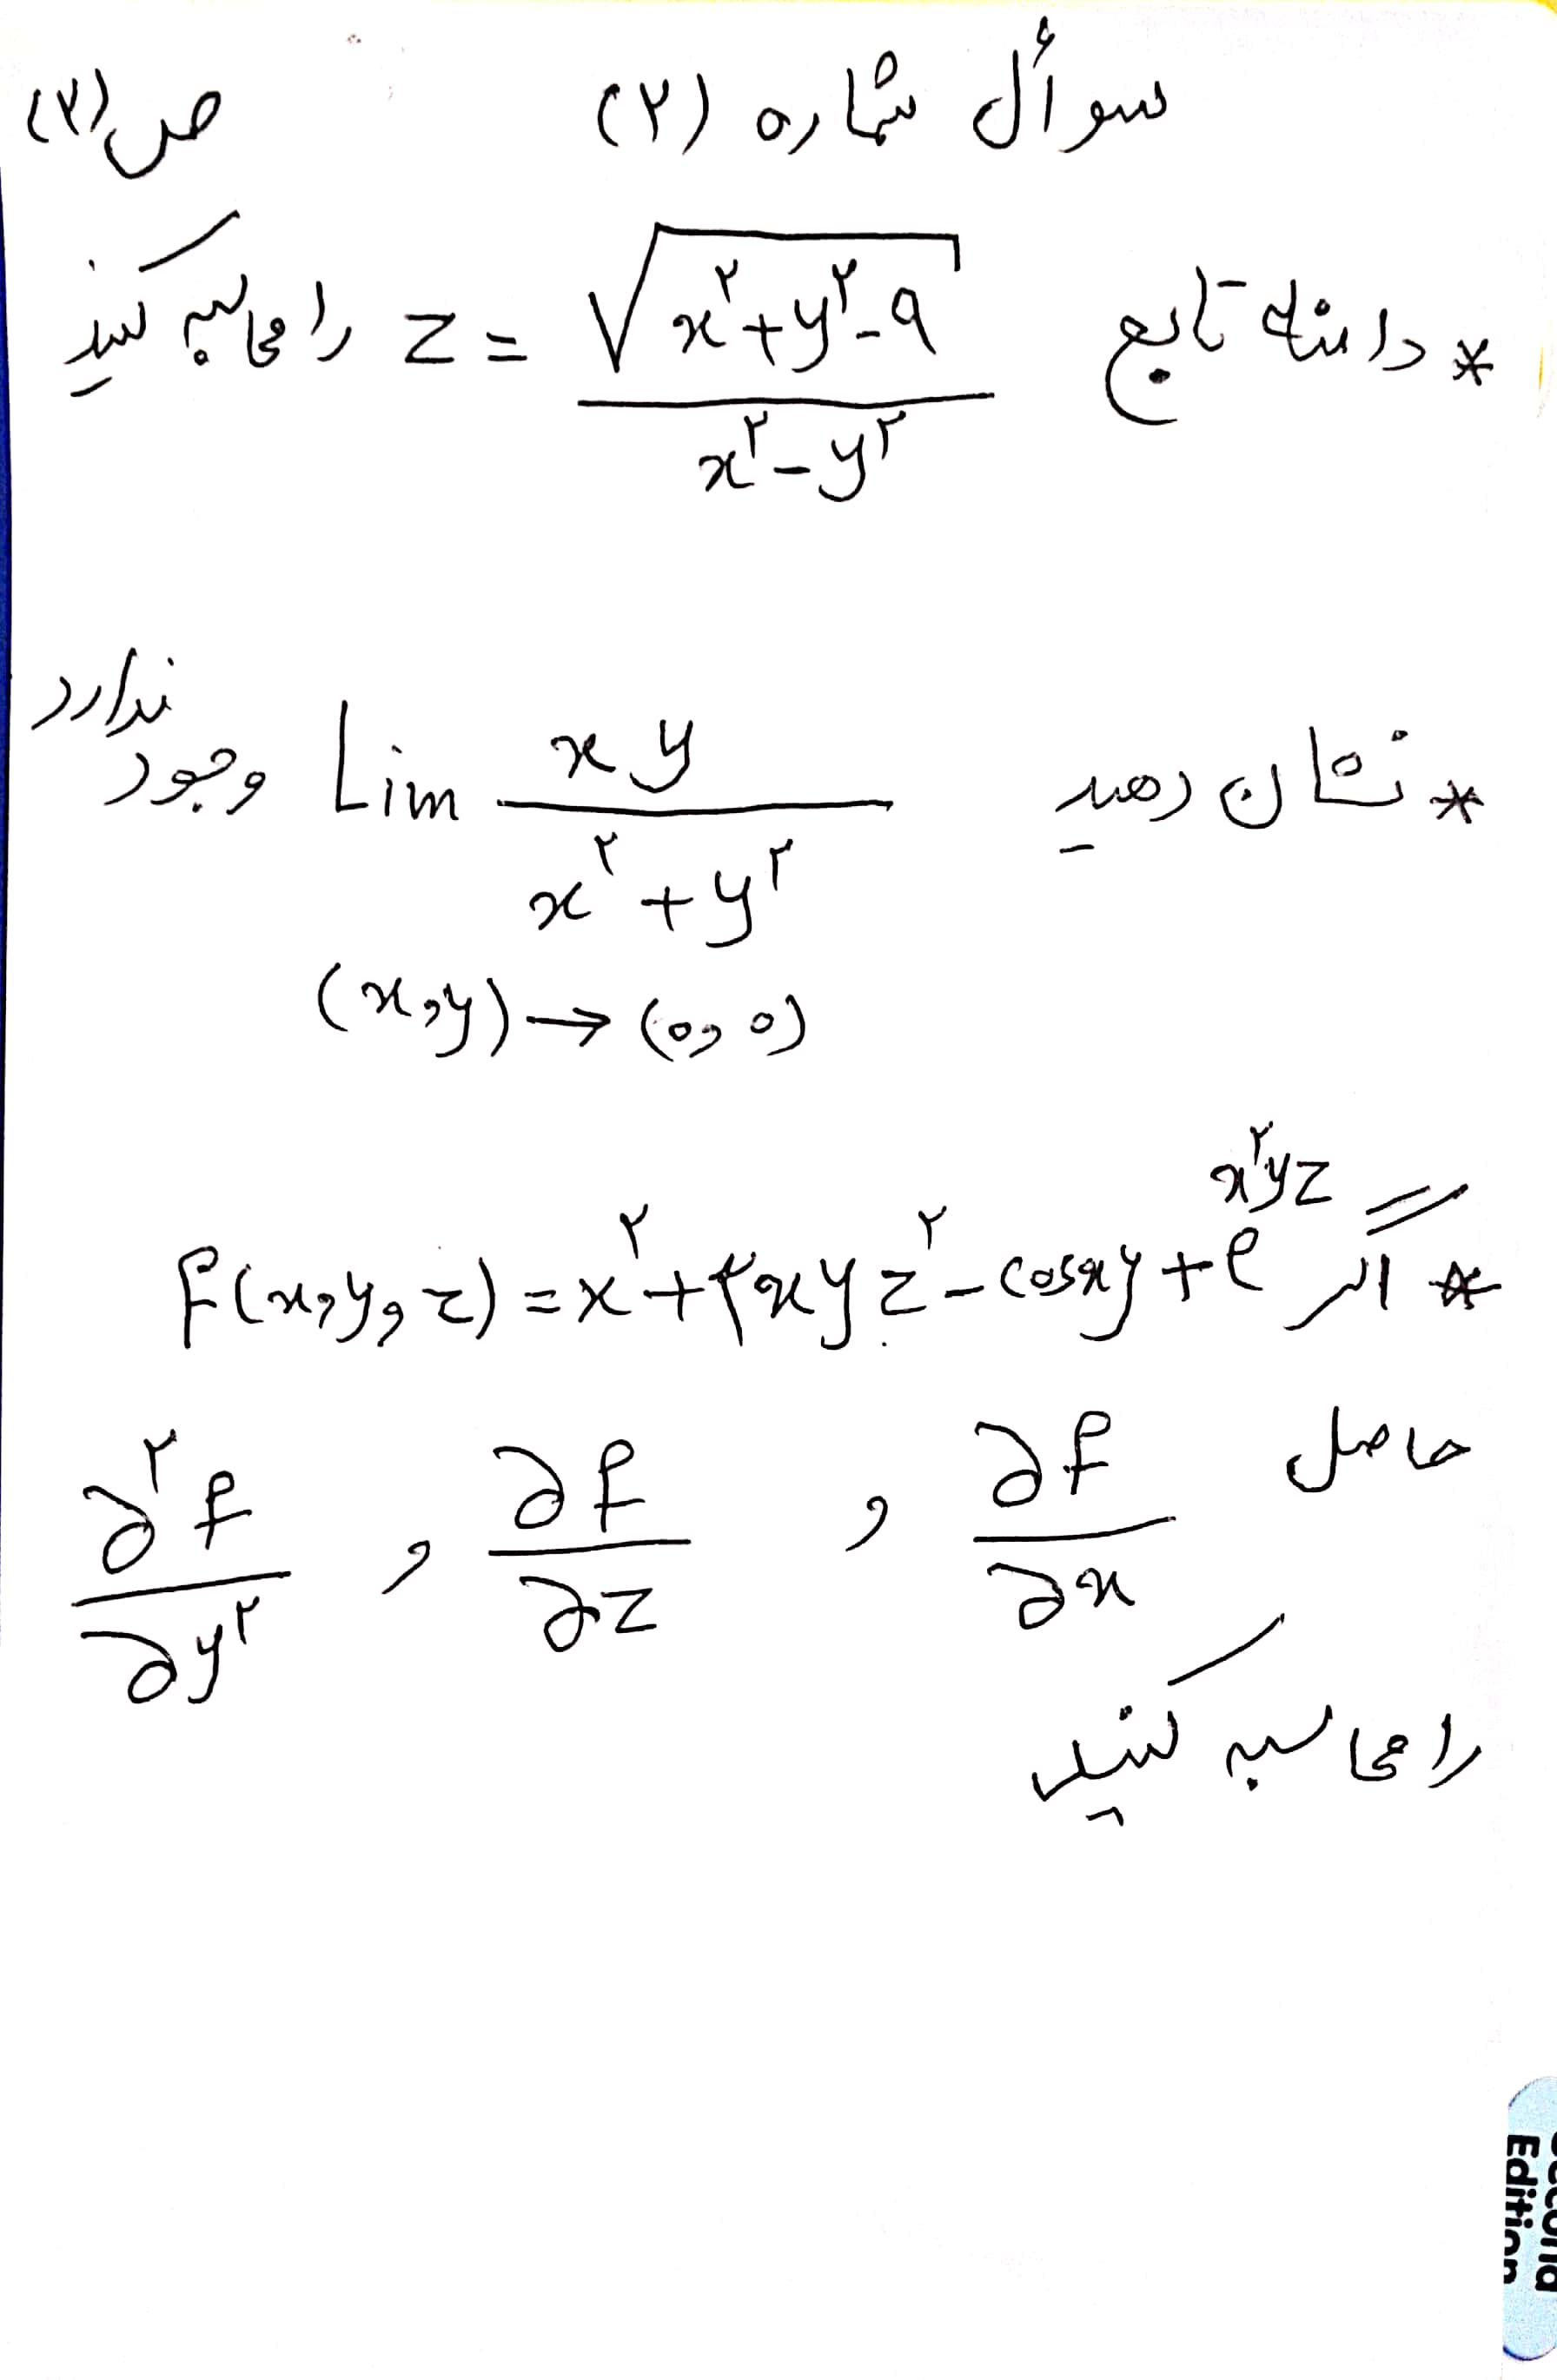 سوأل شماره (۲) ص(۲)
* دامنه تابع z = √(x^۲+y^۲-۹) / (x^۲-y^۲) را محاسبه کنید
* نشان دهید Lim xy / (x^۲+y^۲) وجود ندارد
(x,y) → (0,0)
* اگر f(x,y,z) = x^۲+۲xyz^۲-cosxy+e^(x^۲yz)
حاصل ∂f/∂x , ∂f/∂z , ∂^۲f/∂y^۲
را محاسبه کنید
Second
Edition